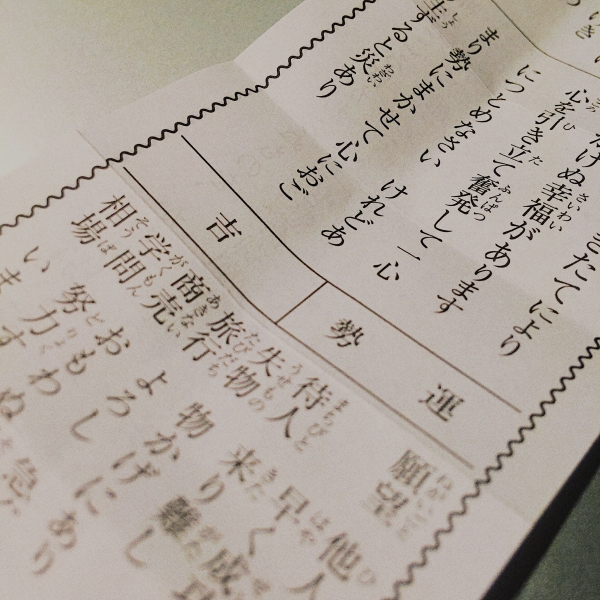 きたてにより
がけぬ幸福があります
心を引き立て奮発して一心
につとめなさい けれどあ
まり勢にまかせて心におご
生ずると災あり
運勢
吉
願望 他人
早く成功
待人 来り難し
失物 物かげにあり
旅行 よろし
商売 おもわぬ急な
学問 努力
相場 います